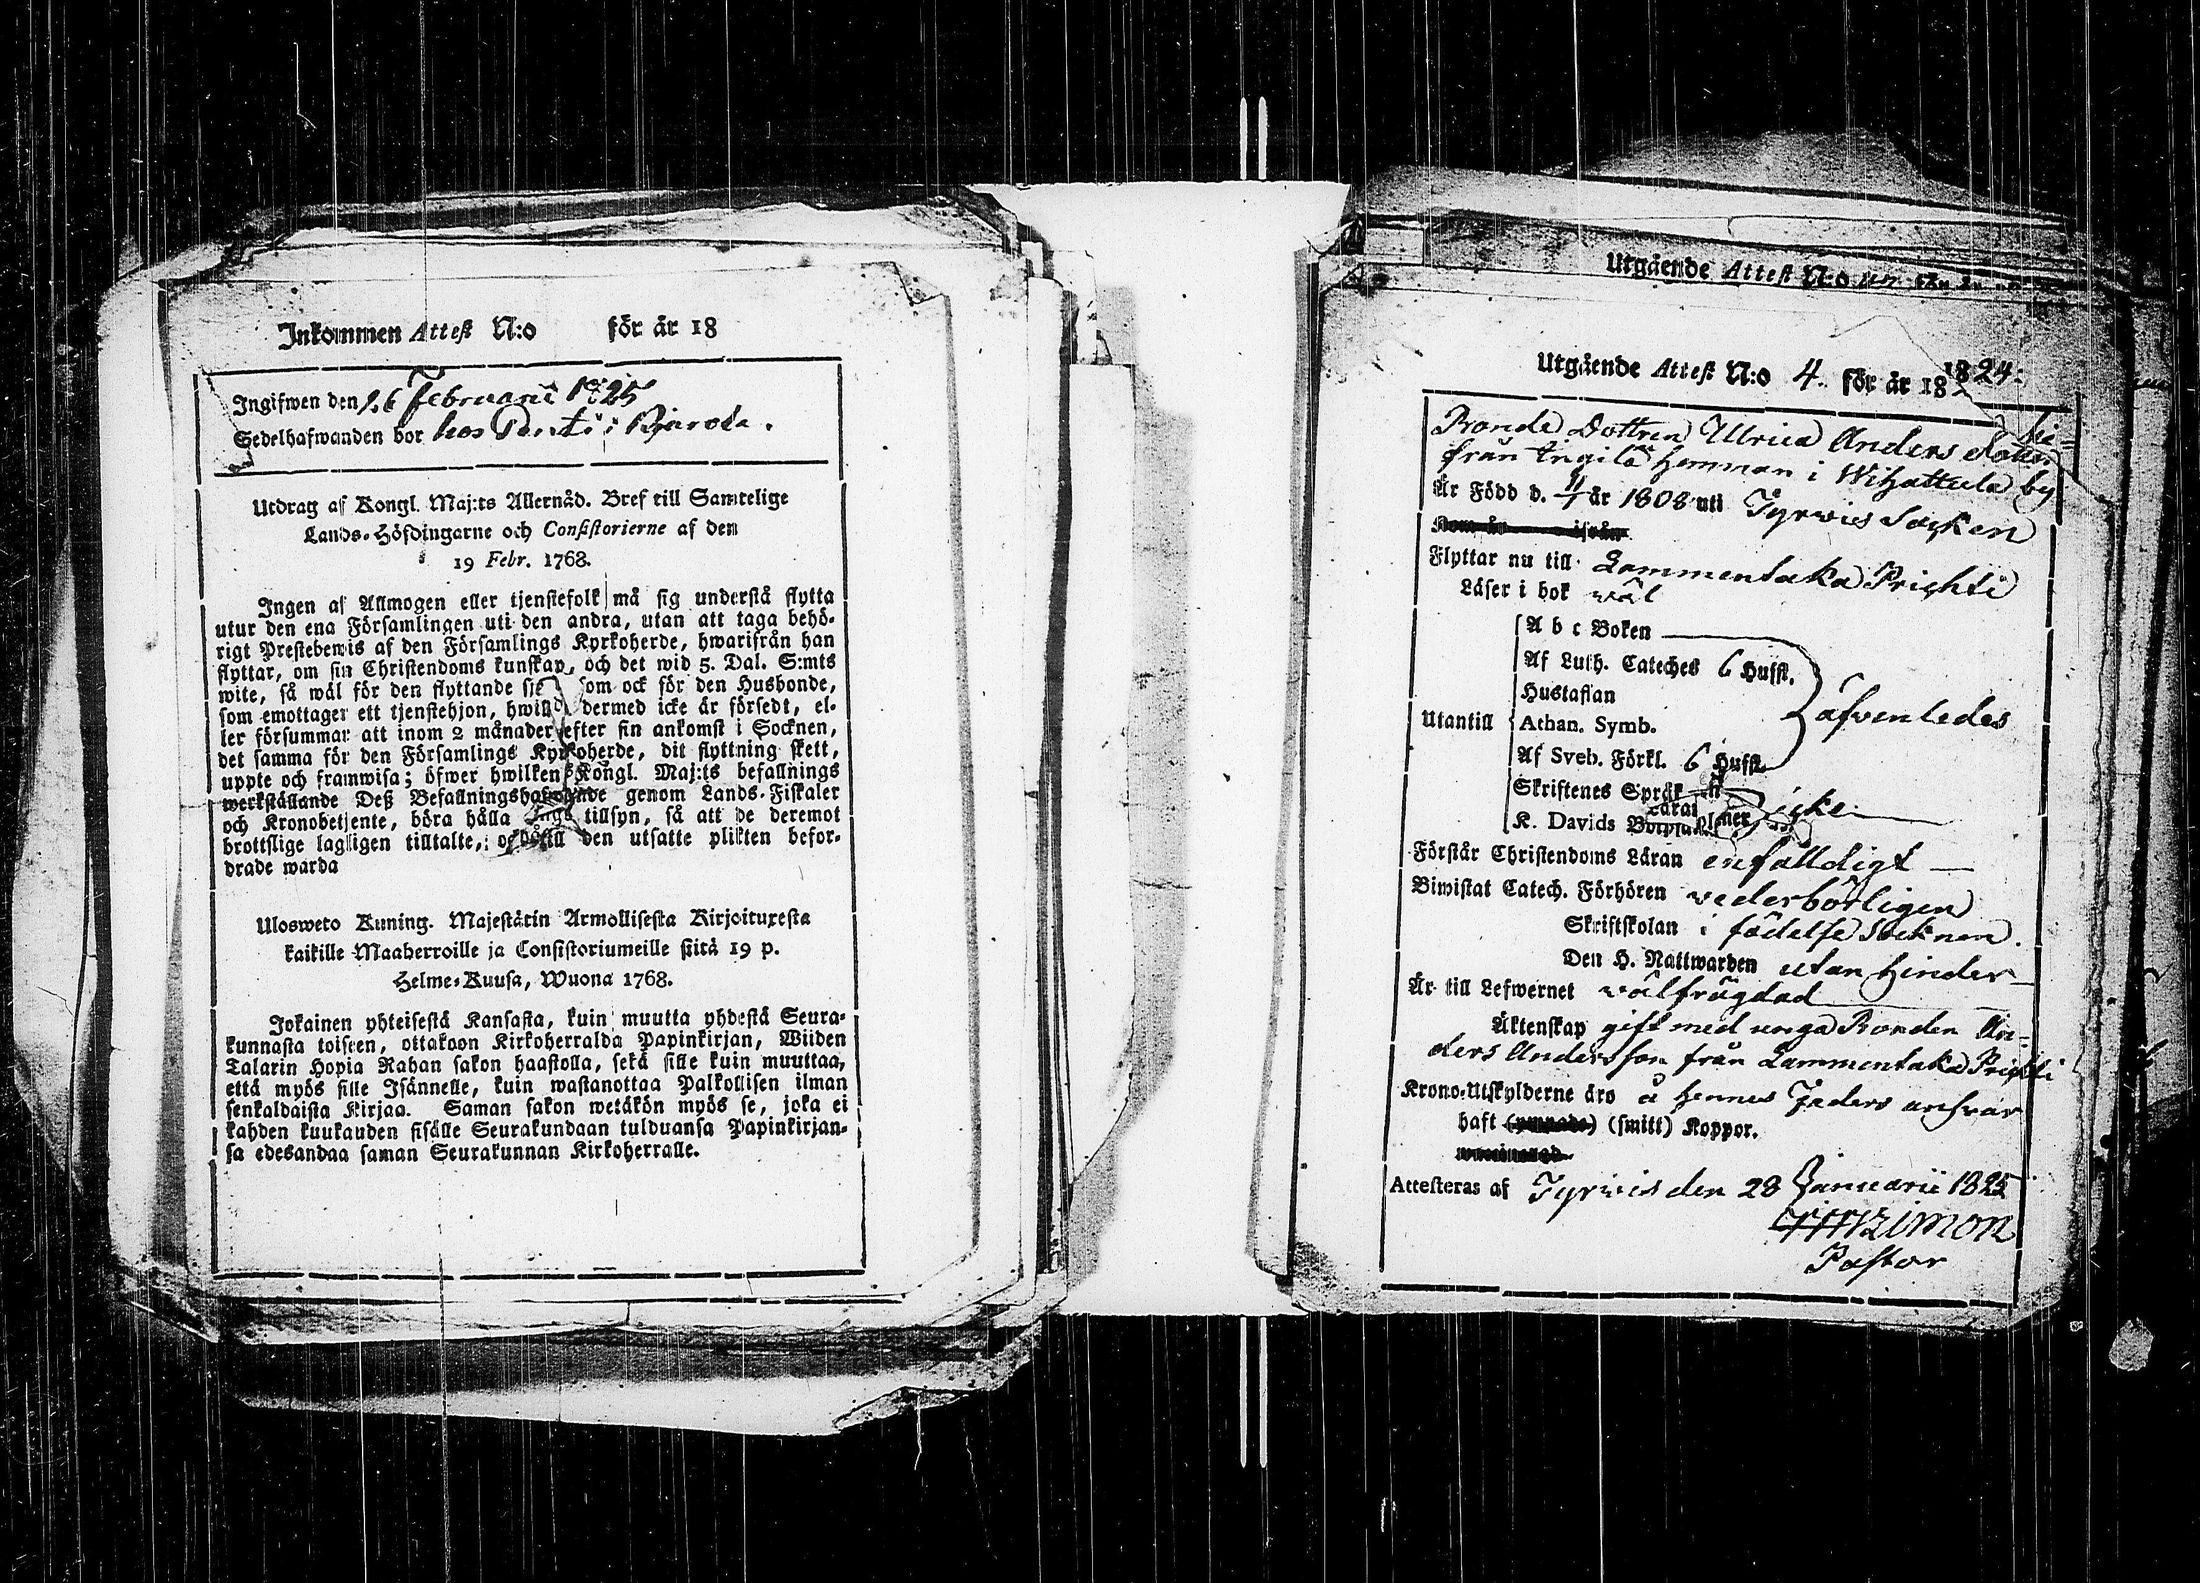 Inkommen Attest N:o för år 18
Ingifwen den 26 Februarii 1825
Sedelhafwanden bor hos Pentti i
Utdrag af Kongl. Maj:ts Allernåd. Bref till Samtelige
Lands-Höfdingarne och Consistorierne af den
19 Febr. 1768.
Ingen af Allmogen eller tjenstefolk må sig understå flytta
utur den ena Församlingen uti den andra, utan att taga behö-
rigt Prestebewis af den Församlings Kyrkoherde, hwarifrån han
flyttar, om sin Christendoms kunskap, och det wid 5. Dal. S:mts
wite, så wäl för den flyttande som ock för den Husbonde,
som emottager ett tjenstehjon, dermed icke är försedt, el-
ler försummar att inom 2 månader efter sin ankomst i Socknen,
det samma för den Församlings Kyrkoherde, dit flyttning skett,
uppte och framwisa; öfwer hwilken Kongl. Maj:ts befallnings
werkställande Deß Befallningshafwande genom Lands-Fiskaler
och Kronobetjente, böra hålla tillsyn, så att de deremot
brottslige lagligen tilltalte, den utsatte plikten befor-
drade warda
Ulosweto Kuning. Majestätin Armollisesta Kirjoituxesta
kaikille Maaherroille ja Consistoriumeille siitä 19 p.
Helme-Kuusa, Wuona 1768.
Jokainen yhteisestä Kansasta, kuin muutta yhdestä Seura-
kunnasta toiseen, ottakoon Kirkoherralda Papinkirjan, Wiiden
Talarin Hopia Rahan sakon haastolla, sekä sille kuin muuttaa,
että myös sille Isännelle, kuin wastanottaa Palkollisen ilman
senkaldaista Kirjaa. Saman sakon wetäkön myös se, joka ei
kahden kuukauden sisälle Seurakundaan tulduansa Papinkirjan-
sa edesandaa saman Seurakunnan Kirkoherralle.
Utgående Attest N:o
Utgående Attest N:o 4. för år 18 1824:
Bonde Dottren Ulrica Anders dotter
från Ingilä Hemman i Wihattula by
Är Född d. 11/1 år 1808 uti Tyrwis Socken
Flyttar nu till Lammentaka Prihti
Läser i bok wäl
A b c Boken
Af Luth. Cateches 6 Hufst.
Hustaflan
Utantill Athan. Symb. äfvenledes
Af Sveb. Förkl. 6 Hufst.
Skriftenes Språk icke
K. Davids
Förstår Christendoms Läran enfalldigt
Biwistat Catech. Förhören wederbörligen
Skriftskolan i födelse Socknen.
Den H. Nattwarden utan hinder
Är till Lefwernet wälfrägdad
Äktenskap gift med unga Bonden An-
ders Andersson från Lammentaka Prihti
Krono-Utskylderne äro å hennes Faders answar
haft (smitt) Koppor.
Attesteras af Tyrwis den 28 Januarii 1825
Pastor